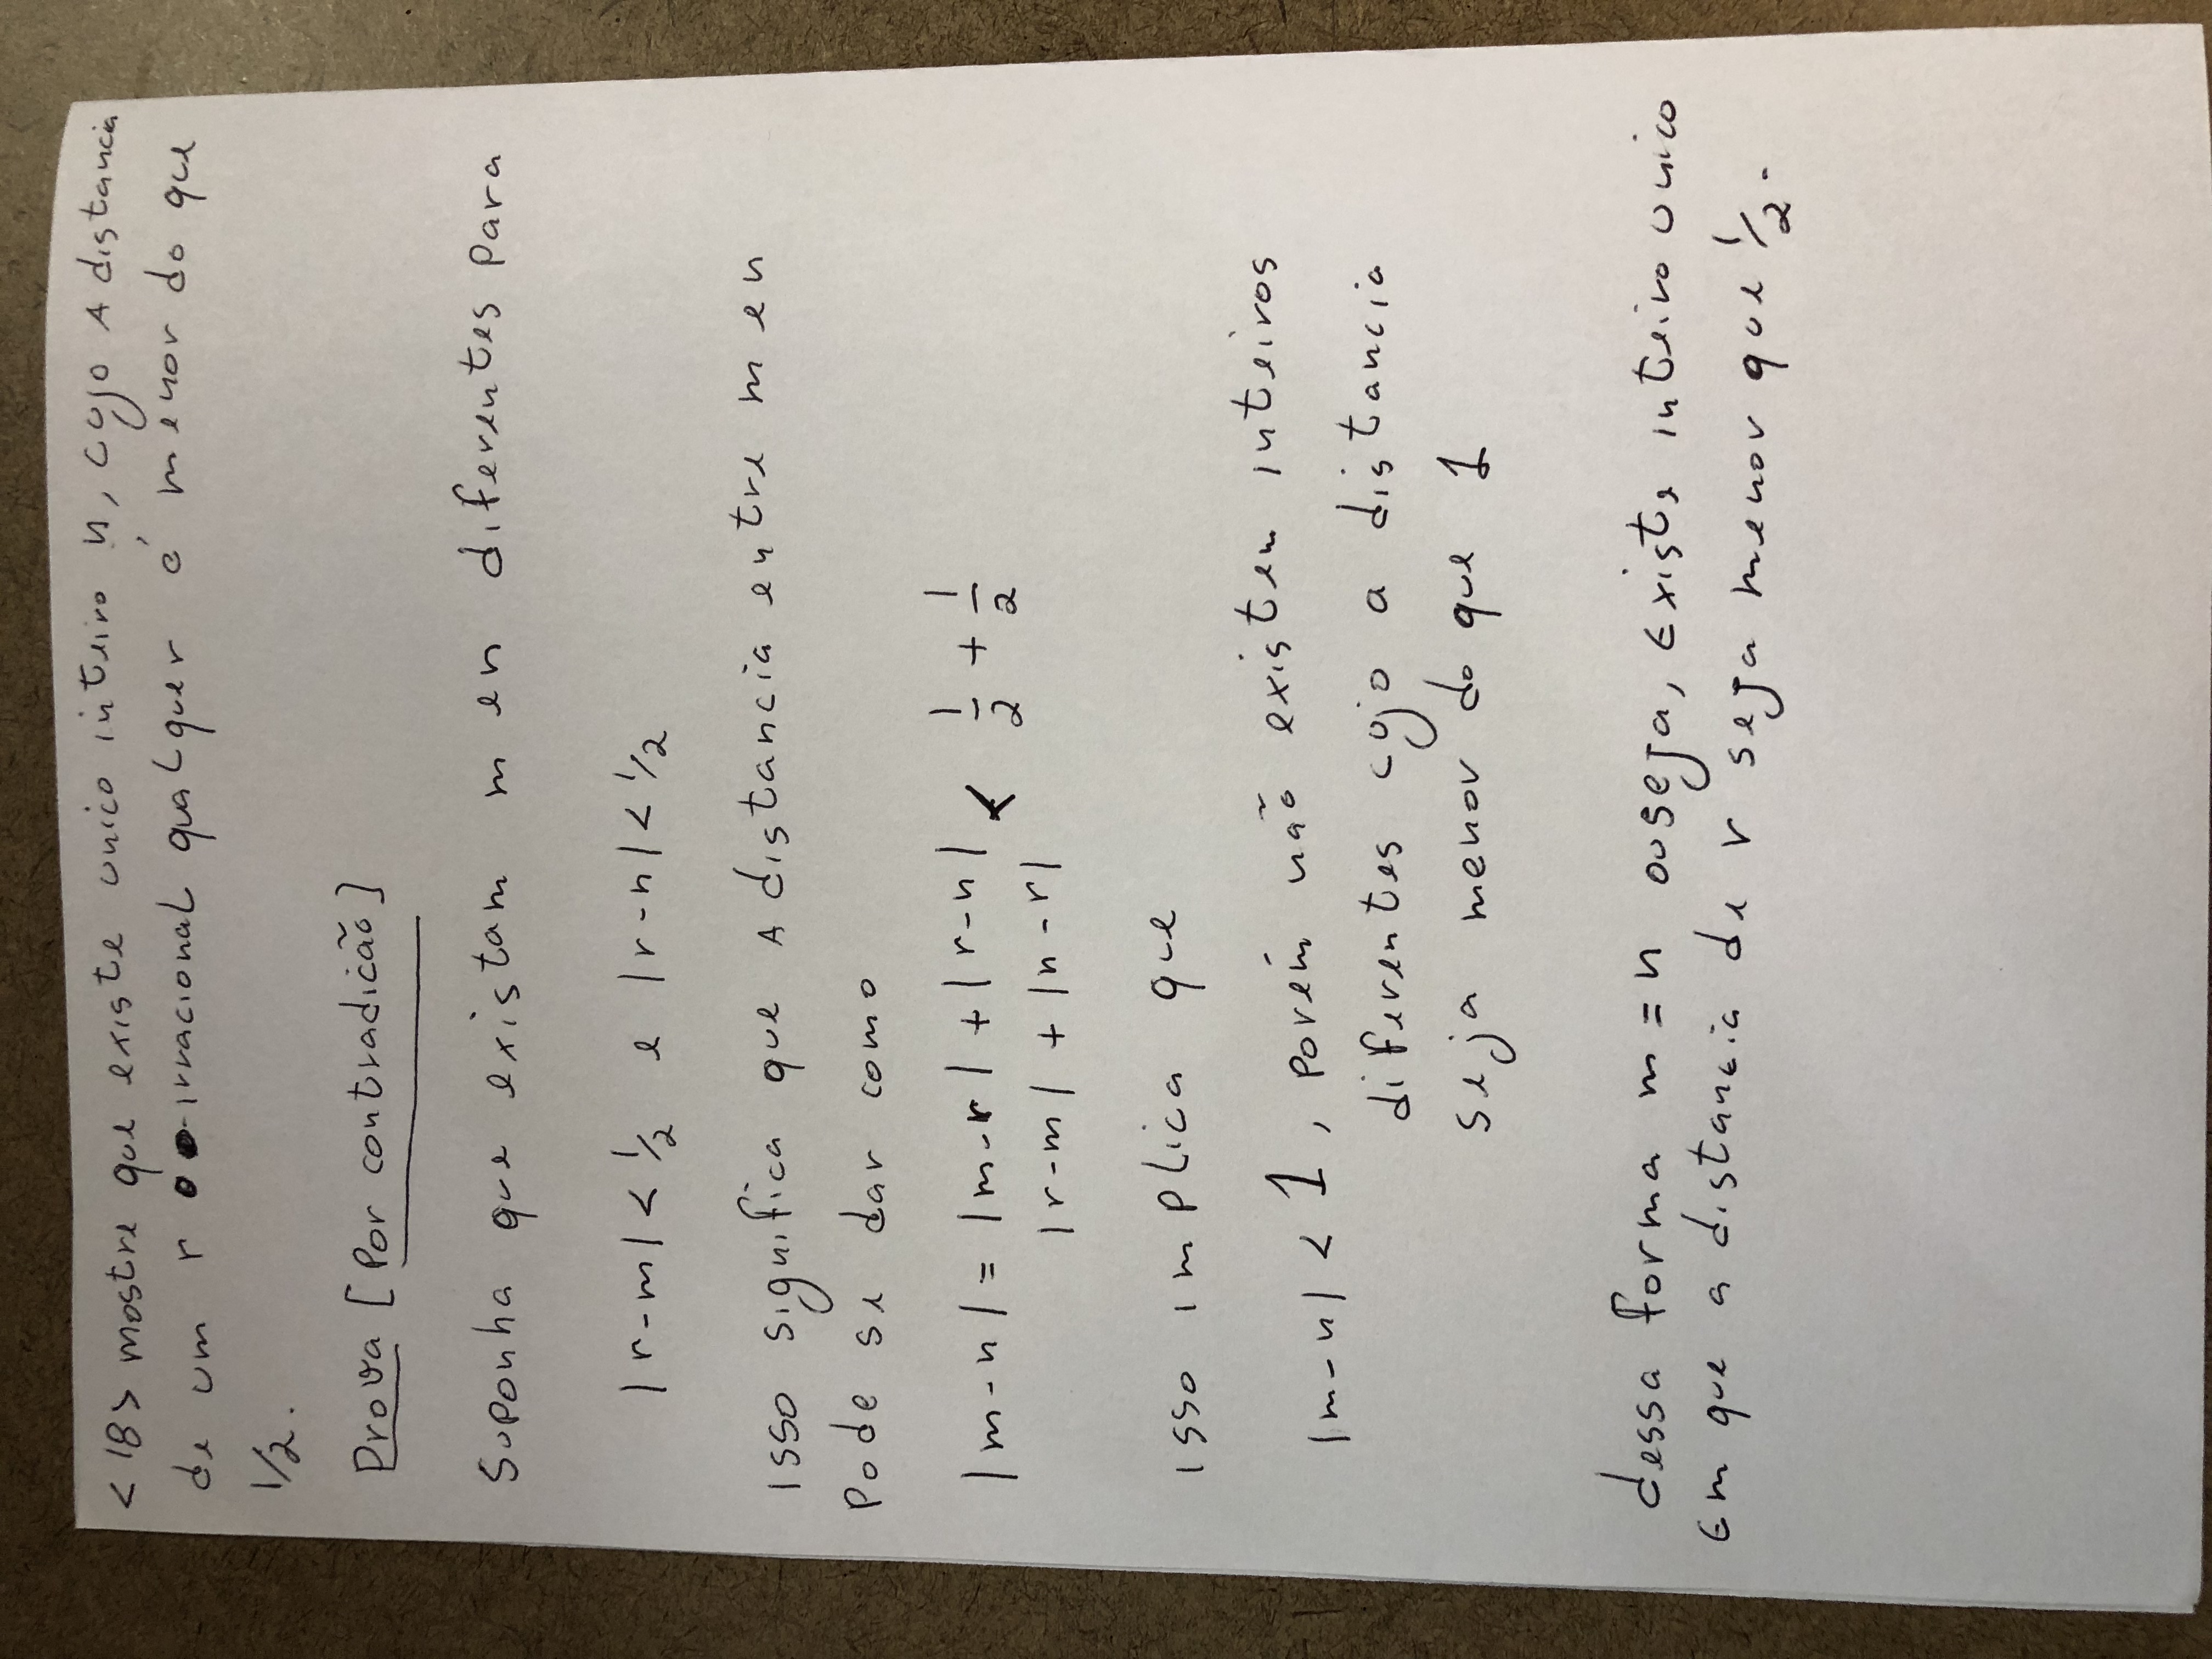 <18> mostre que existe unico inteiro n, cujo A distancia
de um r irracional qualquer é menor do que
1/2.
Prova [Por contradicão]
Suponha que existam m e n diferentes para
|r-m| < 1/2 e |r-n| < 1/2
Isso significa que A distancia entre m e n
Pode se dar como
|m-n| = |m-r| + |r-n| < 1/2 + 1/2
|r-m| + |n-r|
Isso implica que
|m-n| < 1, porém não existem inteiros
diferentes cujo a distancia
seja menor do que 1
dessa forma m = n ou seja, Existe inteiro unico
Em que a distancia de r seja menor que 1/2.